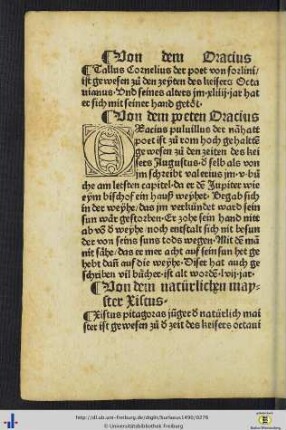 ¶Von dem Oracius
¶Tallus Cornelius der poet von forlini/
ist gewesen zů den zeyten des keisers Octa
uianus· Vnd seines alters jm·xliiij·jar hat
er sich mit seiner hand getöt·
¶Von dem poeten Oracius
ORacius puluillus der nähatt
poet ist zů rom hoch gehalten
gewesen zů den zeiten des kei
sers Augustus·d selb als von
jm schreibt valerius jm·v·bů
che am letsten capitel·da er dē Jupiter wie
eym bischof ein hauß weyhet· Begab sich
in der weyhe/das jm verkündet ward sein
sun wär gestorben· Er zohe sein hand nit
ab vō d weyhe noch entstalt sich nit besun
der von seins suns tods wegen· Mit dē mā
nit sähe/das er mer acht auf sein sun het ge
hebt dañ auf die weyhe· Diser hat auch ge
schriben vil bücher·ist alt wordē·lvij·jar·
¶Von dem natürlichen may-
ster Xistus·
¶Xistus pitagoras jůger d natürlich mai
ster ist gewesen zů d zeit des keisers octaui
http://dl.ub.uni-freiburg.de/diglit/burlaeus1490/0279
© Universitätsbibliothek Freiburg